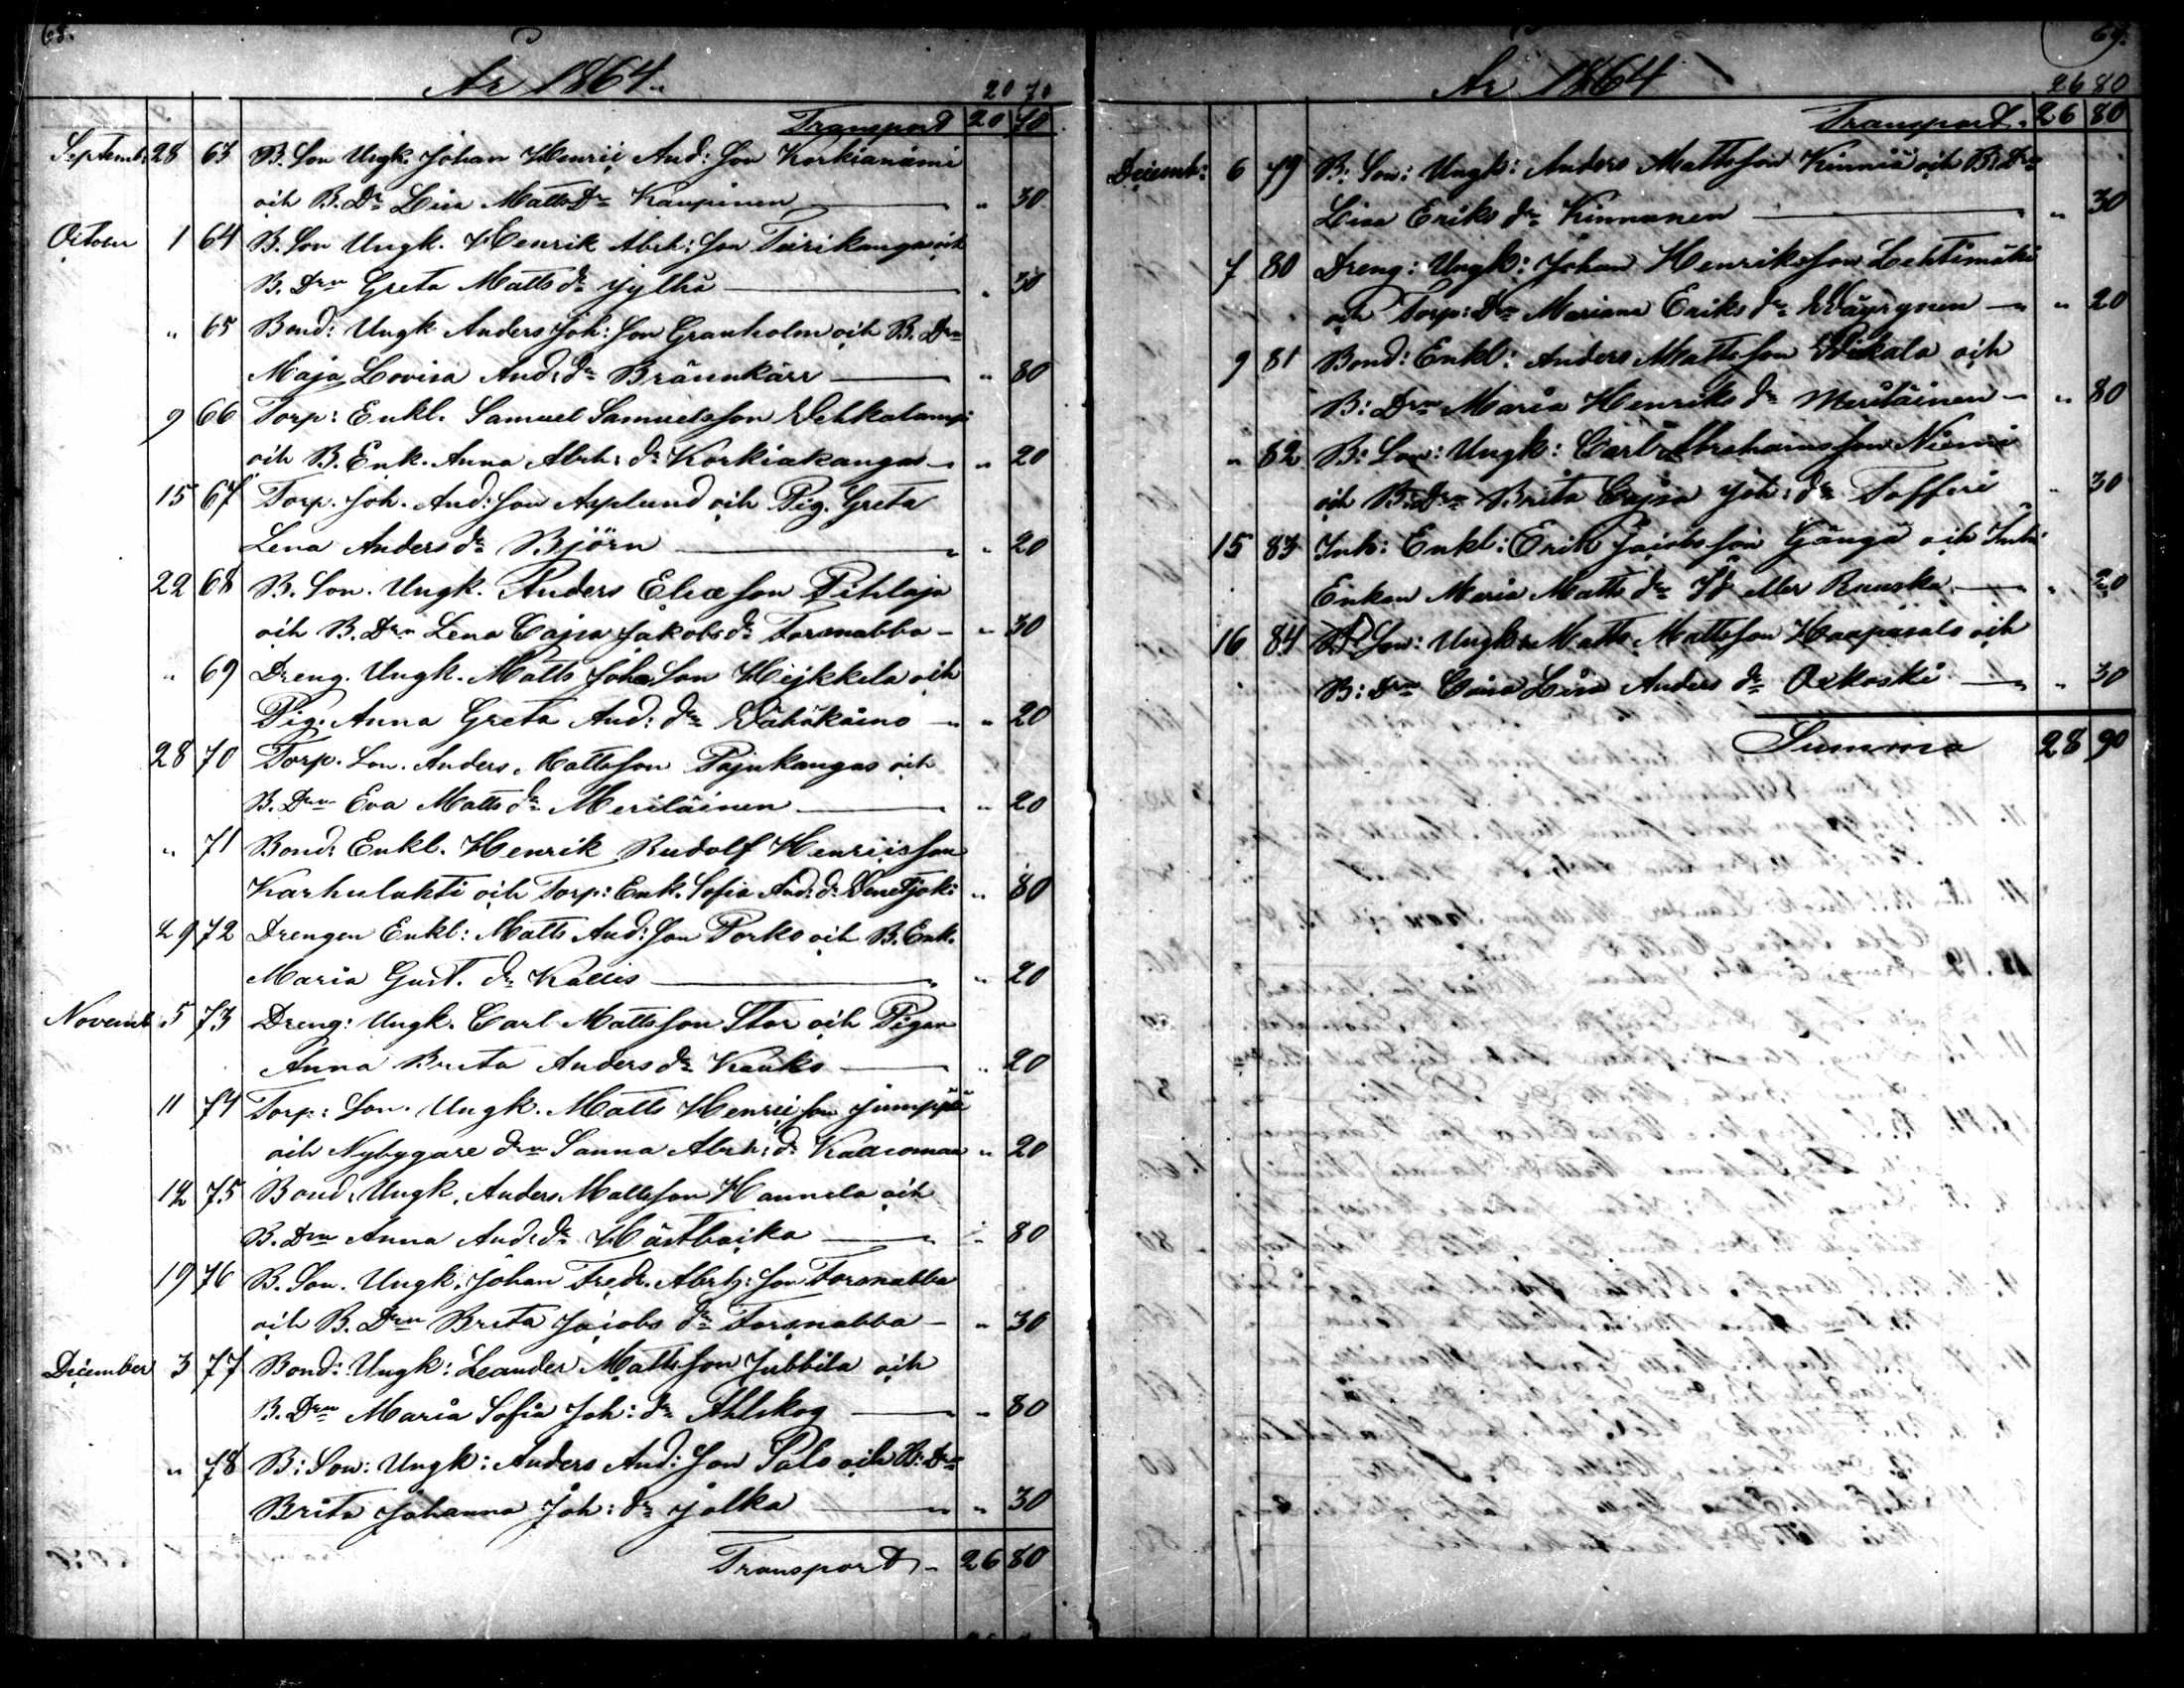 68.
År 1864.
20 70
Transport 20 70
Septemb: 28 63 B. Son Ungk. Johan Henric And: Son Korkianiemi
och B. Dr Lisa Matts Dr Kaupinen " 30
October 1 64 B. Son Ungk. Henrik Abrh: Son Teirikangas och
B. Drn Greta Matts dr Jylhä " 30
" 65 Bond: Ungk Anders Joh: Son Granholm och B. Drn
Maja Lovisa And: dr Brännkärr " 80
9 66 Torp: Enkl. Samuel Samuelsson Vehkalampi
och B. Enk. Anna Abrh: dr Korkiakangas " 20
15 67 Torp. Joh. And: Son Asplund och Pig. Greta
Lena Anders dr Björn " 20
22 68 B. Son. Ungk. Anders Eliæson Pihlaja
och B. Drn Lena Cajsa Jakobs dr Forsnabba " 30
" 69 Dreng. Ungk. Matts Joh Son Heikkila och
Pig. Anna Greta And: dr Vähäkaino " 20
28 70 Torp. Son. Anders Mattsson Pajukangas och
B. Drn Eva Matts dr Meriläinen " 20
" 71 Bond: Enkl. Henrik Rudolf Henricsson
Karhulahti och Torp: Enk. Sofia And: dr Venetjoki " 80
29 72 Drengen Enkl: Matts And: Son Porko och B. Enk.
Maria Gust. dr Kallis " 20
Novemb. 5 73 Dreng: Ungk. Carl Mattsson Stor och Pigan
Anna Brita Anders dr Kauko " 20
11 74 Torp: Son. Ungk. Matts Henricson Jumppi
och Nybygare drn Sanna Abrh: dr " 20
12 75 Bond: Ungk. Anders Mattsson Hannila och
B. Drn Anna And: dr Hästbacka " 80
19 76 B. Son. Ungk. Johan Fredr. Abrh: Son Forsnabba
och B. Drn Brita Jacobs dr Forsnabba " 30
December 3 77 Bond: Ungk: Leander Mattsson Jubbila och
B. Drn Maria Sofia Joh: dr Ahlskog " 80
" 78 B: Son: Ungk: Anders And: Son Palo och B: Drn
Brita Johanna Joh: dr Jolka " 30
Transport 26 80
69.
År 1864
26 80
Transport. 26 80
Decemb: 6 79 B: Son: Ungk: Anders Mattsson Kinnia och B: Drn
Lisa Eriks dr Kinnunen " 30
7 80 Dreng: Ungk: Johan Henriksson Lehtimäki
och Torp: Drn Mariana Eriks dr Wäyrynen " 20
9 81 Bond: Enkl: Anders Mattsson och
B: Drn Maria Henriks dr Meriläinen " 80
" 82 B: Son: Ungk: Carl Abrahamsson Niemi
och B: Drn Brita Cajsa Joh: dr Tofferi " 30
15 83 Inh: Enkl: Erik Jacobsson Gånga och Inh:
Enkan Maria Matts dr Id eller Rauska " 20
16 84 B Son: Ungk: Matts Mattsson Haapasalo och
B: Drn Caisa Lisa Anders dr Oikoski " 30
Summa 28 90